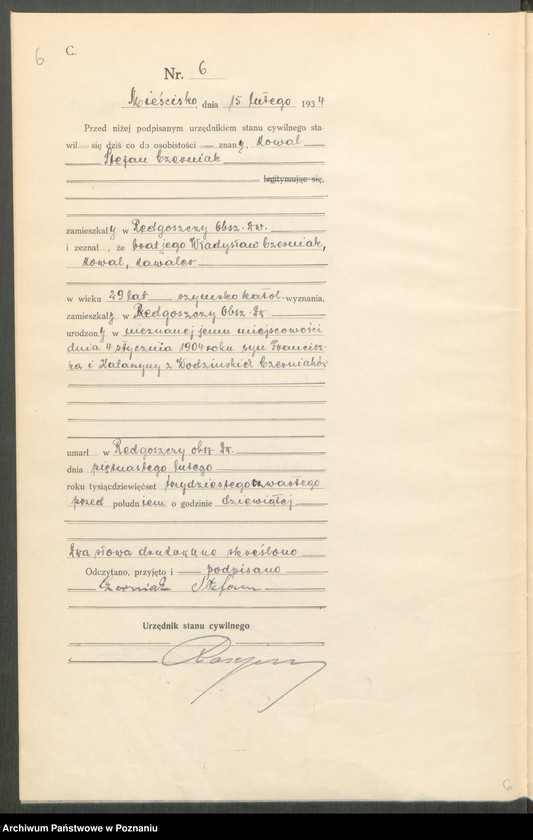 6
C.
Nr. 6
Mieścisko, dnia 15 lutego 1934
Przed niżej podpisanym urzędnikiem stanu cywilnego sta-
wił się dziś co do osobistości znany, Kowal
Stefan Czerniak
legitymując się,
zamieszkały w Redgoszczy Obsz. Dw.
i zeznał, że brat jego Władysław Czerniak,
Kowal, kawaler
w wieku 29 lat rzymsko katol. wyznania,
zamieszkały w Redgoszczy Obsz. Dw.
urodzony w nieznanej jemu miejscowości
dnia 4 stycznia 1904 roku syn Francisz-
ka i Katarzyny z Wodzinskich Czerniaków
umarł w Redgoszczy obsz. Dw.
dnia piętnastego lutego
roku tysiącdziewięćset trzydziestego czwartego
przed południem o godzinie dziewiątej
Dwa słowa drukowane skreślono
Odczytano, przyjęto i podpisano
Czerniak Stefan
Urzędnik stanu cywilnego
6
Archiwum Państwowe w Poznaniu